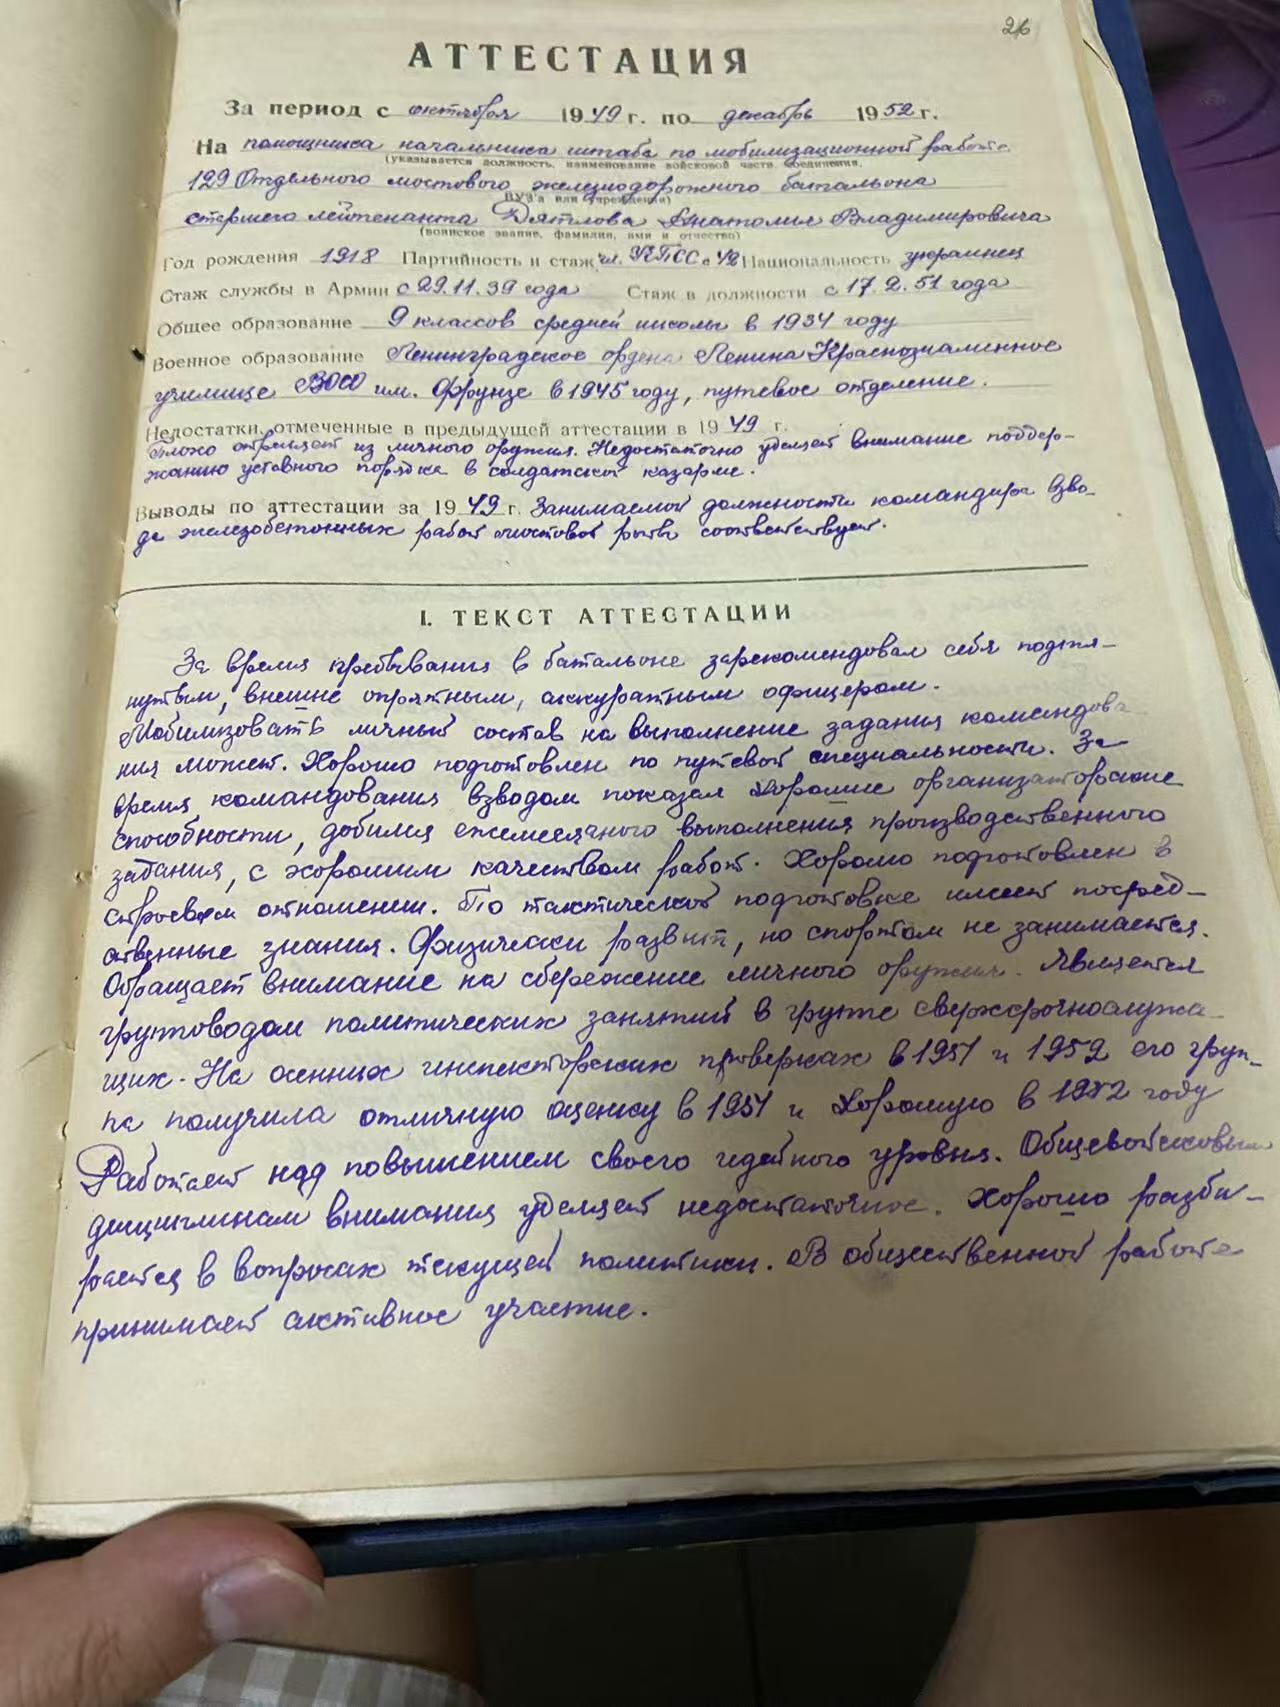 26
АТТЕСТАЦИЯ
За период с октября 1949 г. по декабрь 1952 г.
На помощника начальника штаба по мобилизационной работе
(указывается должность, наименование войсковой части, соединения,
129 Отдельного мостового железнодорожного батальона
ВУЗ'а или учреждения)
старшего лейтенанта Дятлова Анатолия Владимировича
(воинское звание, фамилия, имя и отчество)
Год рождения 1918 Партийность и стаж чл. КПСС с 42 Национальность украинец
Стаж службы в Армии с 29.11.39 года Стаж в должности с 17.2.51 года
Общее образование 9 классов средней школы в 1934 году
Военное образование Ленинградское ордена Ленина Краснознаменное
училище ВОСО им. Фрунзе в 1945 году, путевое отделение.
Недостатки, отмеченные в предыдущей аттестации в 1949 г.
Плохо стреляет из личного оружия. Недостаточно уделяет внимание поддер-
жанию уставного порядка в солдатской казарме.
Выводы по аттестации за 1949 г. Занимаемой должности командира взво-
да железобетонных работ мостовой роты соответствует.
I. ТЕКСТ АТТЕСТАЦИИ
За время пребывания в батальоне зарекомендовал себя подтя-
нутым, внешне опрятным, аккуратным офицером.
Мобилизовать личный состав на выполнение задания командова
ния может. Хорошо подготовлен по путевой специальности. За
время командования взводом показал хорошие организаторские
способности, добился ежемесячного выполнения производственного
задания, с хорошим качеством работ. Хорошо подготовлен в
строевом отношении. По тактической подготовке имеет посред-
ственные знания. Физически развит, но спортом не занимается.
Обращает внимание на сбережение личного оружия. Является
групповодом политических занятий в группе сверхсрочнослужа-
щих. На осенних инспекторских проверках в 1951 и 1952 его груп-
па получила отличную оценку в 1951 и хорошую в 1952 году
Работает над повышением своего идейного уровня. Общевойсковым
дисциплинам внимания уделяет недостаточное. Хорошо разби-
рается в вопросах текущей политики. В общественной работе
принимает активное участие.